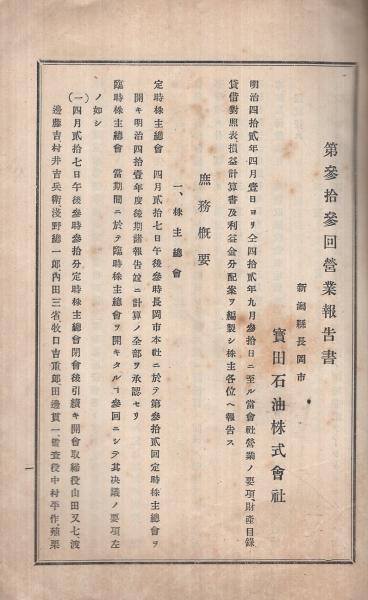 第參拾參回營業報告書
新潟縣長岡市
寶田石油株式會社
明治四拾貳年四月壹日ヨリ仝四拾貳年九月參拾日ニ至ル當會社營業ノ要項、財產目錄
貸借對照表損益計算書及利益金分配案ヲ編製シ株主各位ヘ報告ス
庶務概要
一、株主總會
定時株主總會　四月貳拾七日午後參時長岡市本社ニ於テ第參拾貳回定時株主總會ヲ
開キ明治四拾壹年度後期諸報告竝ニ計算ノ全部ヲ承認セリ
臨時株主總會　當期間ニ於テ臨時株主總會ヲ開キタルコ參回ニシテ其決議ノ要項左
ノ如シ
(一)四月貳拾七日午後參時參拾分定時株主總會閉會後引續キ開會取締役山田又七、渡
邊藤吉、村井吉兵衞、淺野總一郎、內田三省、牧口吉重郎、田邊貫一、監查役中村平作、殖栗
一